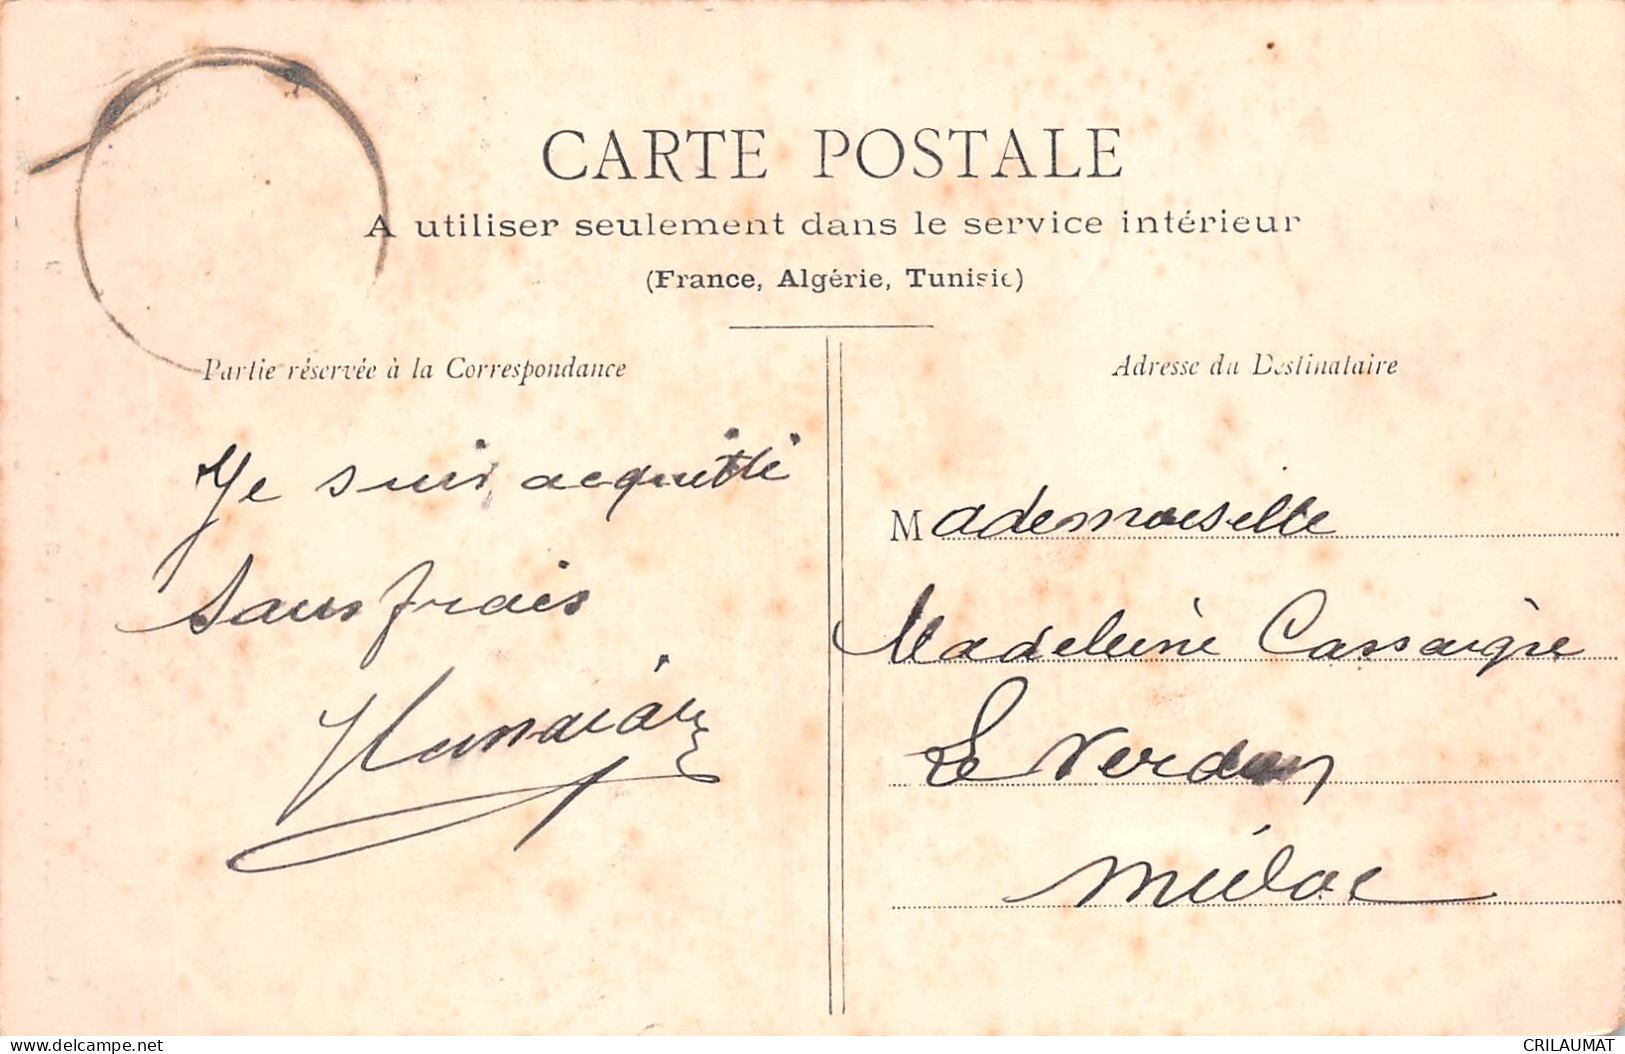 CARTE POSTALE
A utiliser seulement dans le service intérieur
(France, Algérie, Tunisie)
Partie réservée à la Correspondance
Adresse du Destinataire
Je suis acquitté
Sans frais
Mademoiselle
Madeleine Cassaigne
Le Verdon
Médoc
delcampe.net
CRILAUMAT